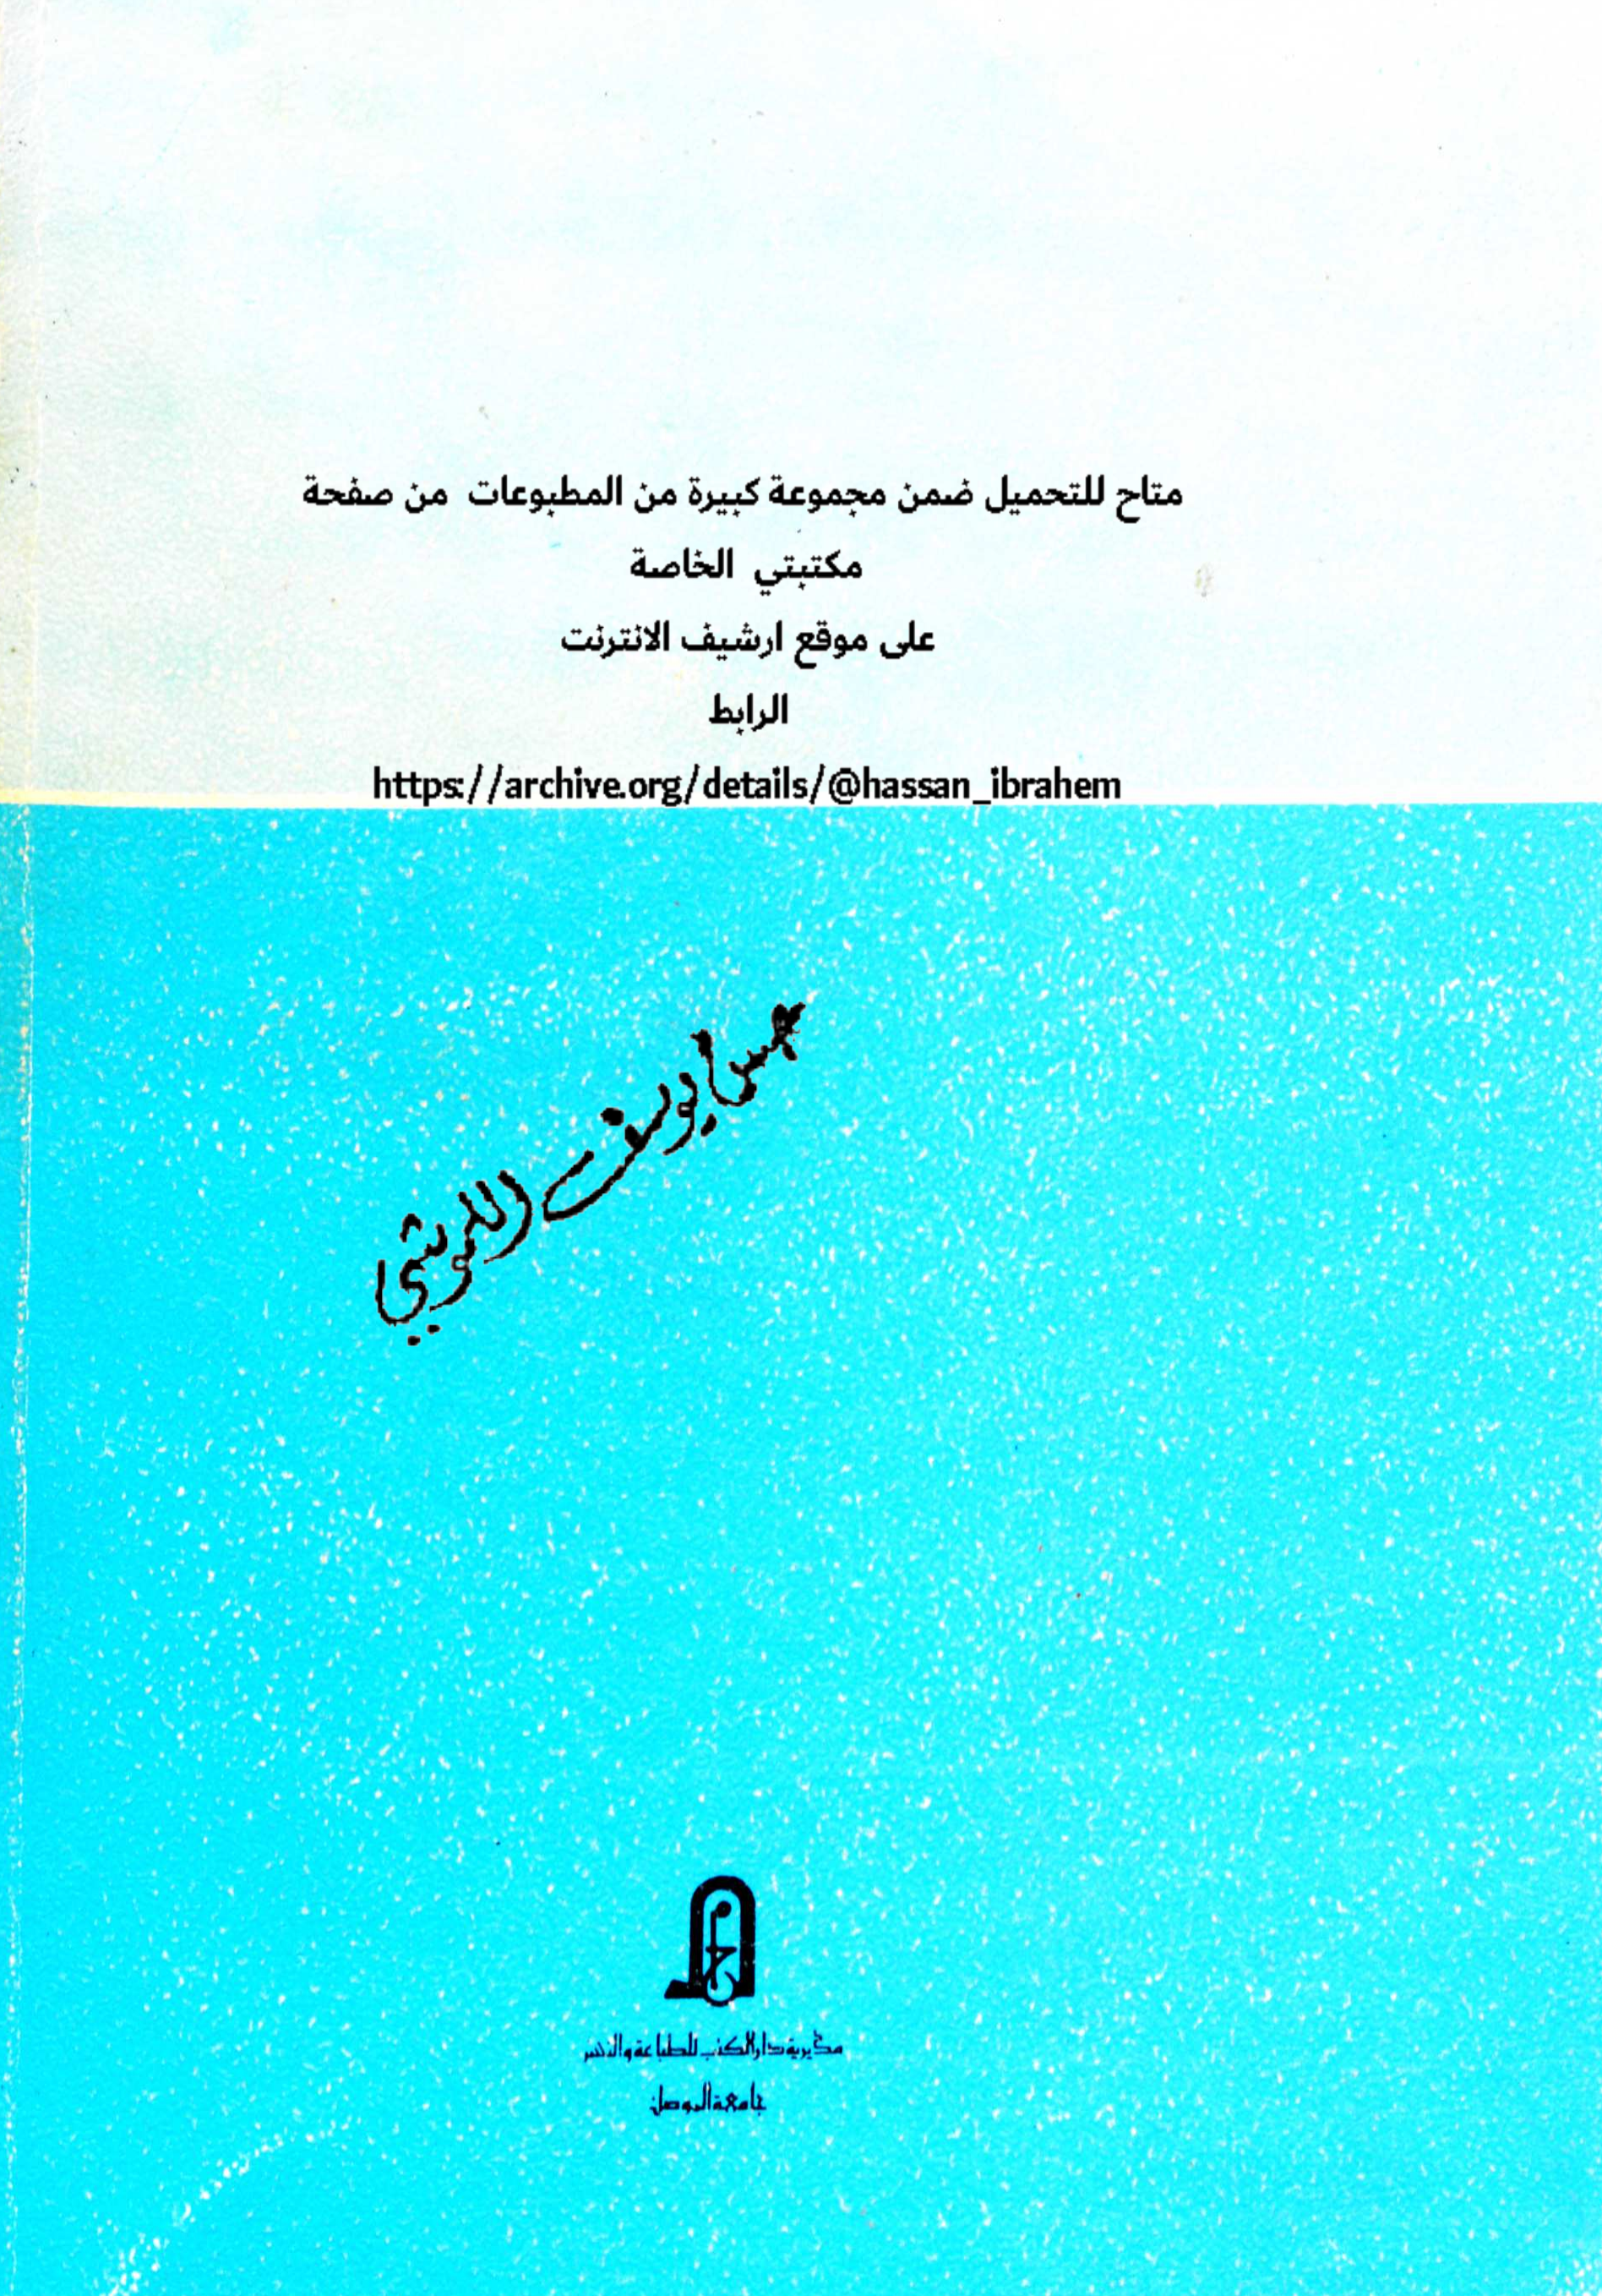 متاح للتحميل ضمن مجموعة كبيرة من المطبوعات من صفحة
مكتبتي الخاصة
على موقع ارشيف الانترنت
الرابط
https://archive.org/details/@hassan_ibrahem
يوسف
مديرية دار الكتب للطباعة والنشر
جامعة الموصل